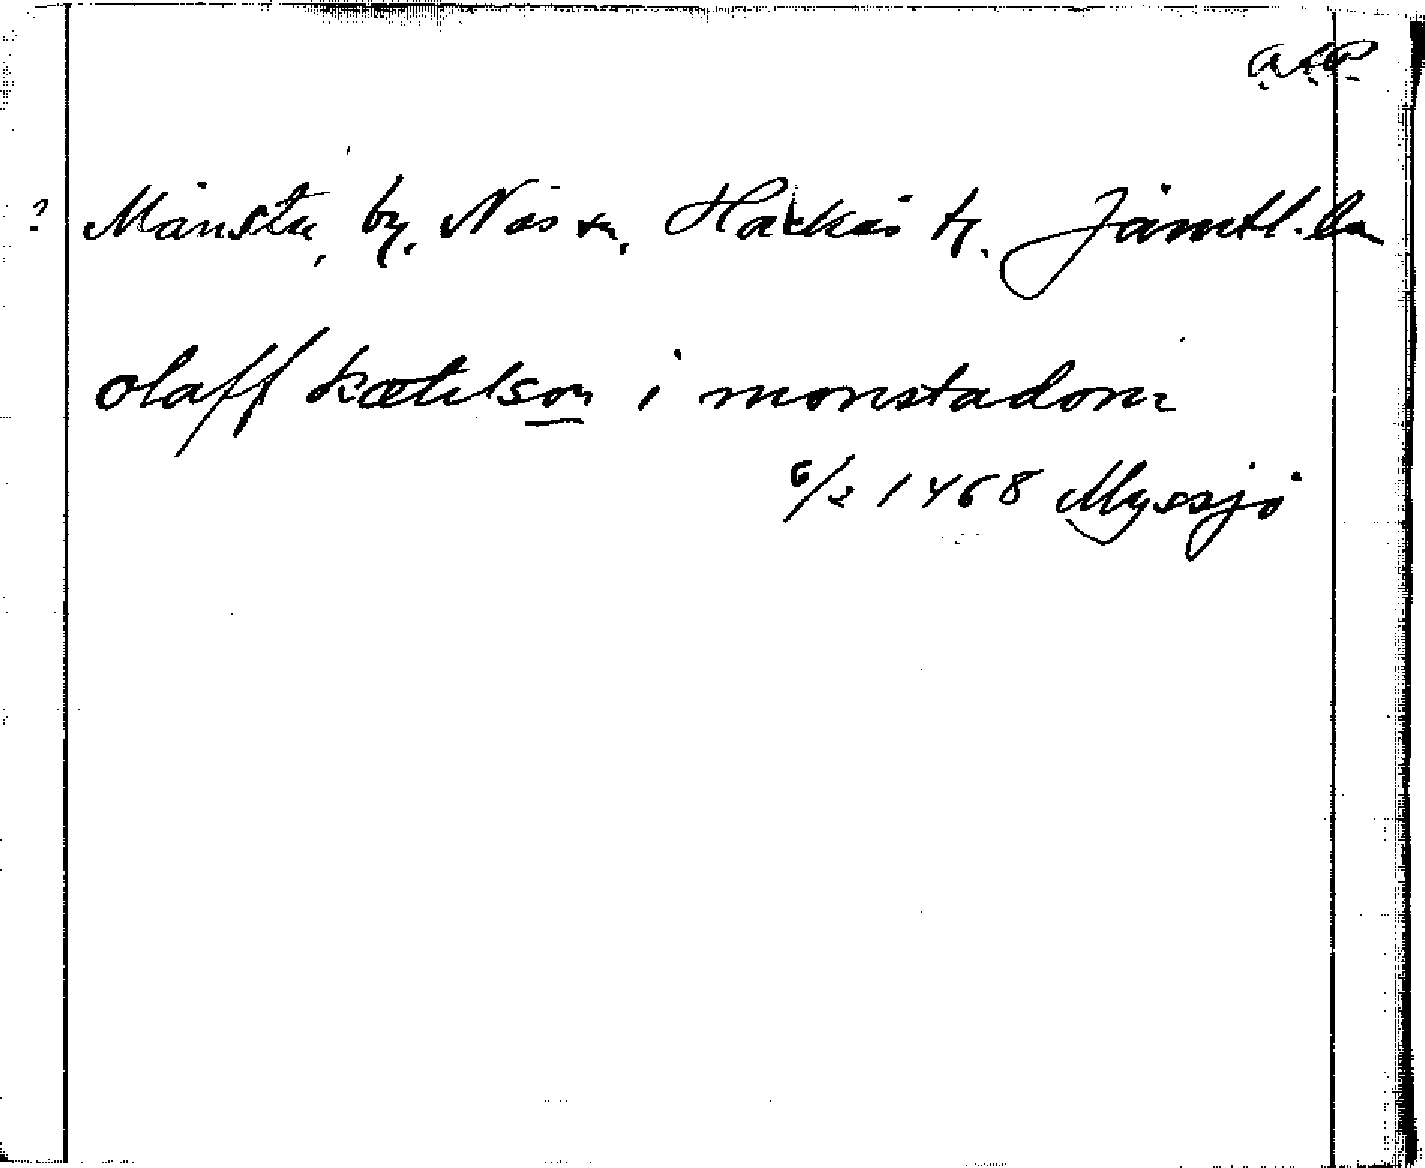 ? Månsta, by, Näs sn, Hackås tg. Jämtl. län
olaff kætelson i monstadom
6/2 1468 Myssjö